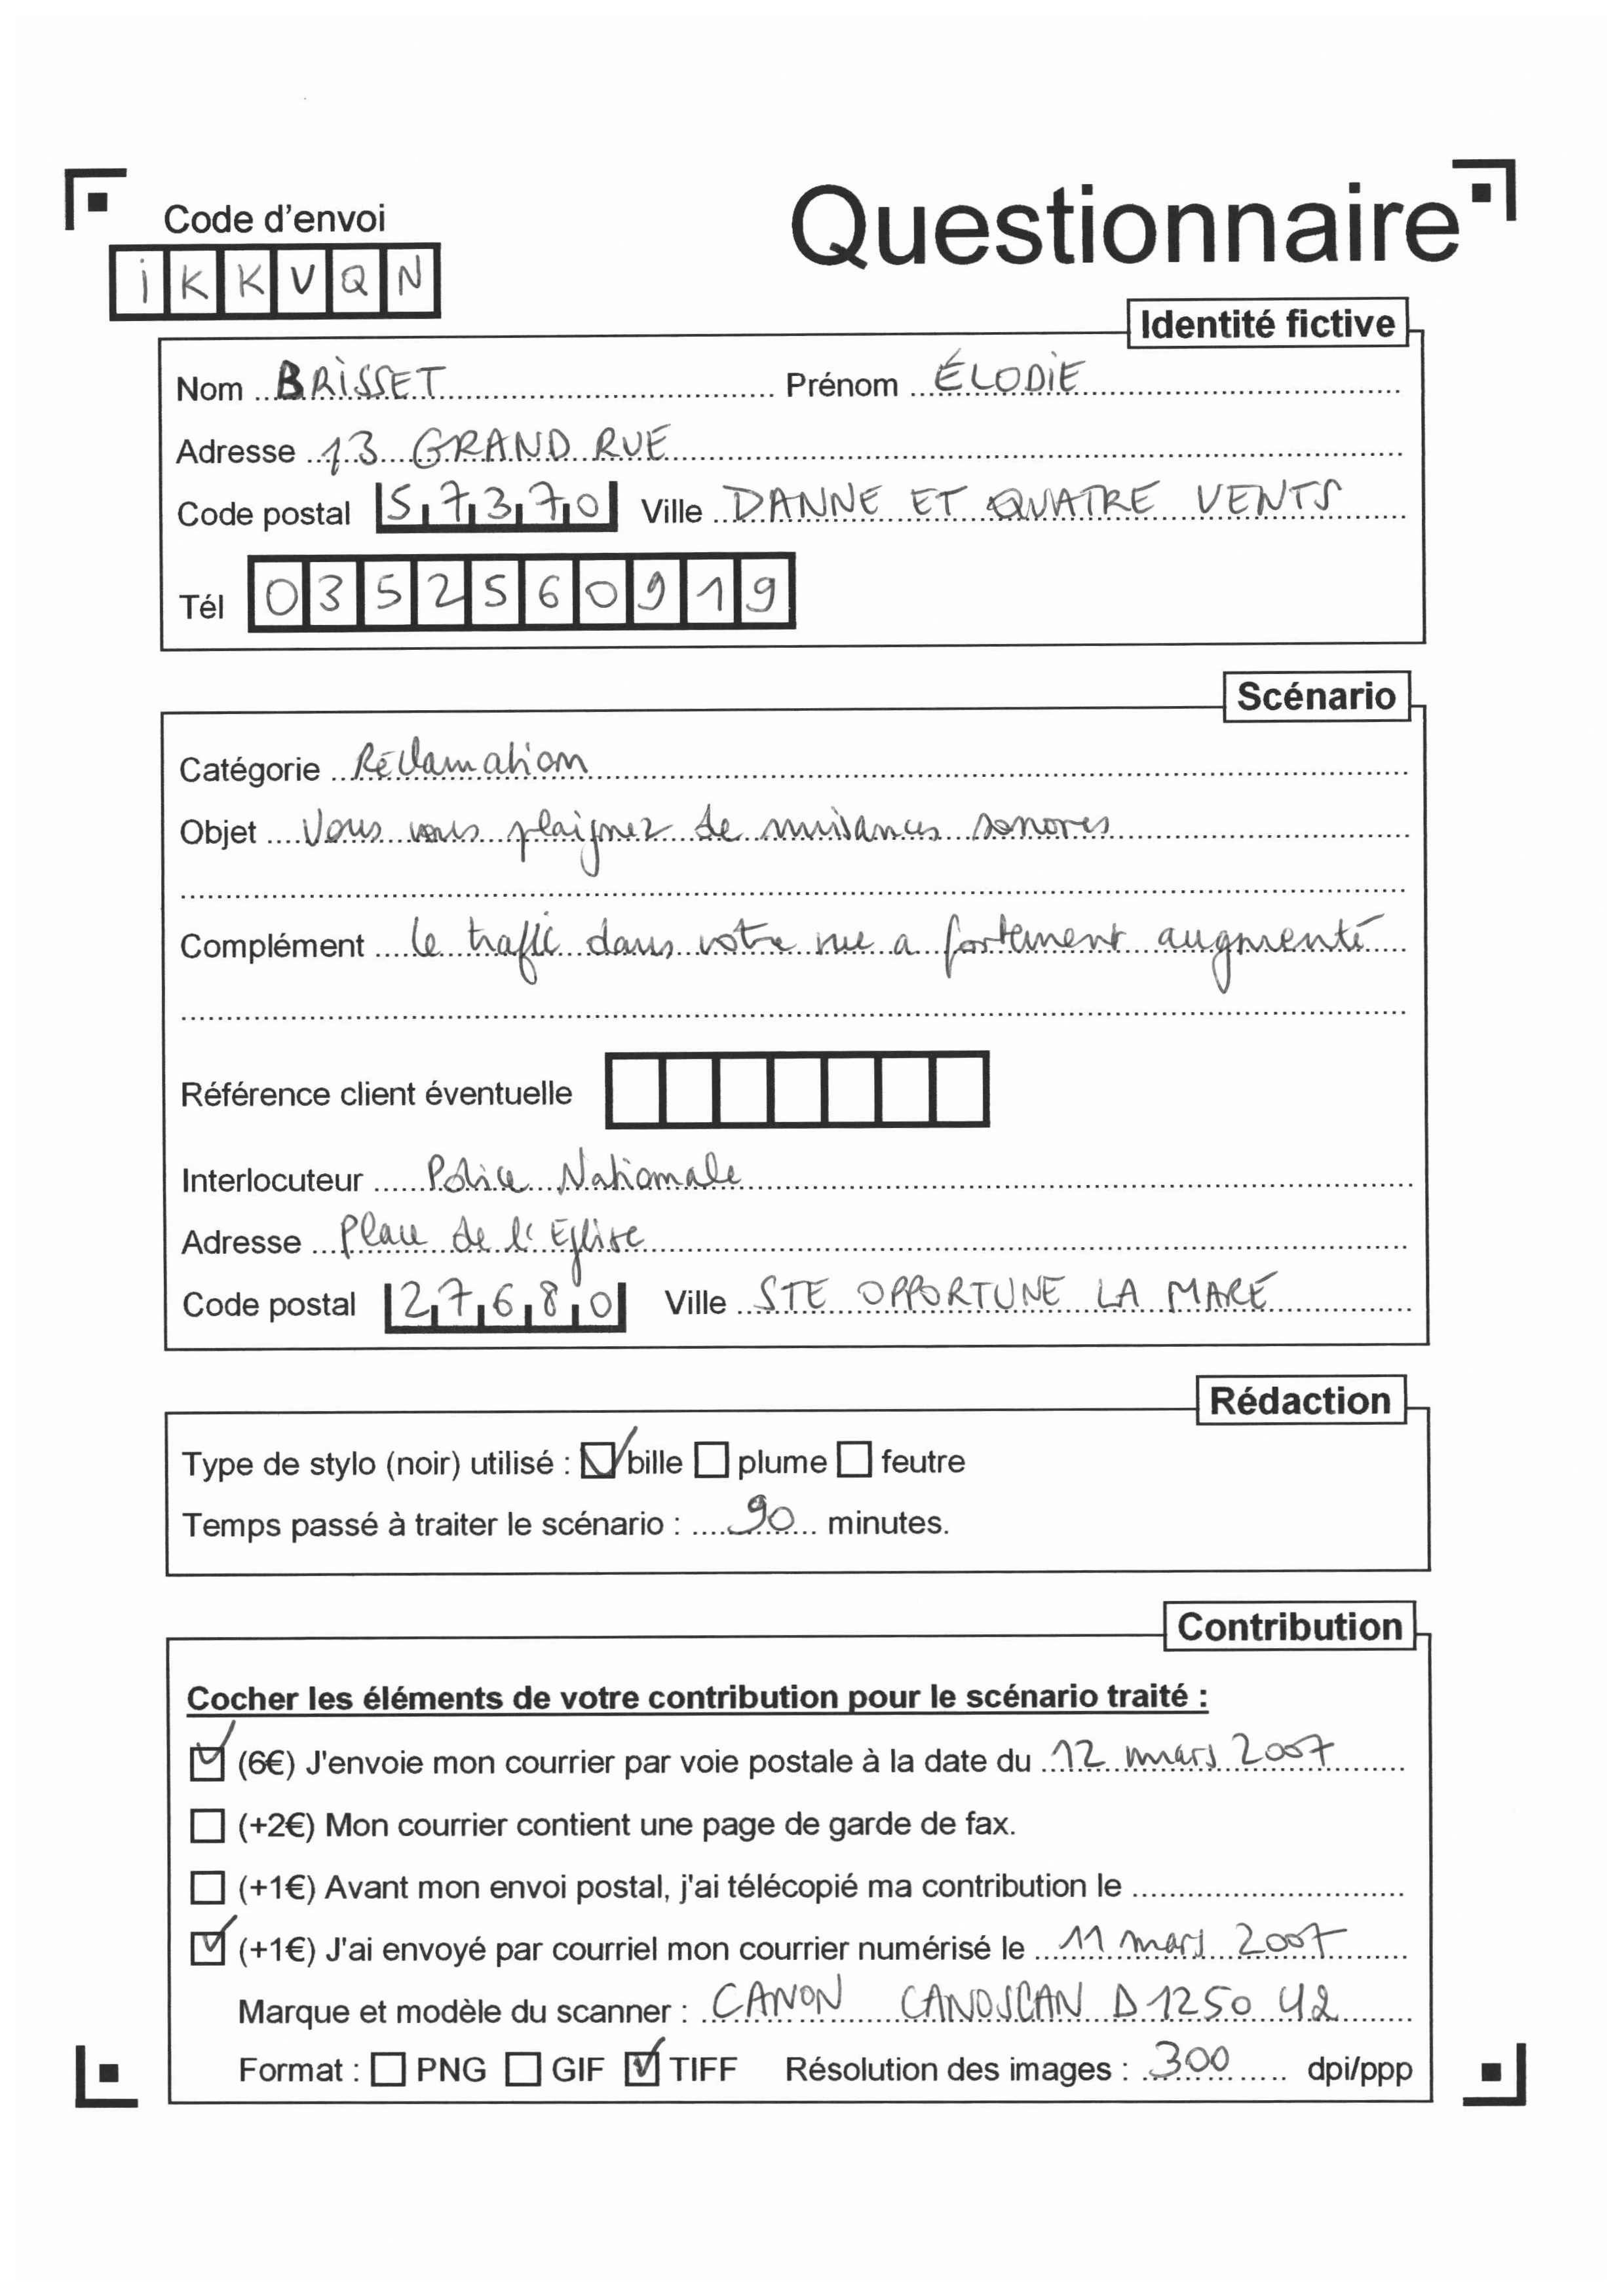 Code d'envoi
Questionnaire
i K K V Q N
Identité fictive
Nom BRiSSET Prénom ÉLODiE
Adresse 13 GRAND RUE
Code postal 57370 Ville DANNE ET QUATRE VENTS
Tél 0352560919
Scénario
Catégorie Réclamation
Objet Vous vous plaignez de nuisances sonores
Complément Le traffic dans votre rue a fortement augmenté
Référence client éventuelle
Interlocuteur Police Nationale
Adresse Place de l'Eglise
Code postal 27680 Ville STE OPPORTUNE LA MARE
Rédaction
Type de stylo (noir) utilisé : bille plume feutre
Temps passé à traiter le scénario : 90 minutes.
Contribution
Cocher les éléments de votre contribution pour le scénario traité :
(6€) J'envoie mon courrier par voie postale à la date du 12 mars 2007
(+2€) Mon courrier contient une page de garde de fax.
(+1€) Avant mon envoi postal, j'ai télécopié ma contribution le
(+1€) J'ai envoyé par courriel mon courrier numérisé le 11 mars 2007
Marque et modèle du scanner : CANON CANOSCAN D1250 U2
Format : PNG GIF TIFF Résolution des images : 300 dpi/ppp